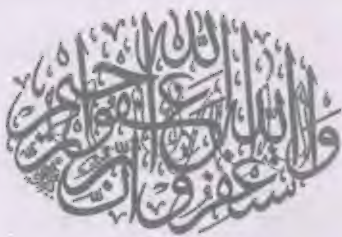 واستغفروا الله ان الله غفور رحيم